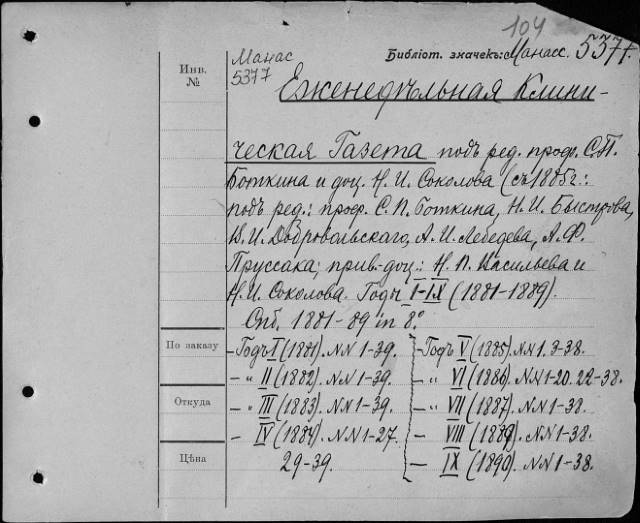 104
Манас
5377
Библіот. значекъ: Манасс. 5377.
Инв.
№
Еженедѣльная Клини-
ческая Газета подъ ред. проф. С.П.
Боткина и доц. Н. И. Соколова (съ 1885 г.:
подъ ред.: проф. С. П. Боткина, Н. И. Быстрова,
В. И. Добровольскаго, А. И. Лебедева, А. Ф.
Пруссака; прив.-доц.: Н. П. Васильева и
Н. И. Соколова. Годъ I-IX (1881-1889).
Спб. 1881-89 in 8°.
По заказу
Откуда
Цѣна
- Годъ I (1881). NN 1-39.
- " II (1882). NN 1-39.
- " III (1883). NN 1-39.
- IV (1884). NN 1-27.
29-39.
- Годъ V (1885). NN 1. 3-38.
- " VI (1886). NN 1-20. 22-38.
- " VII (1887). NN 1-38.
- VIII (1889). NN 1-38.
- IX (1890). NN 1-38.